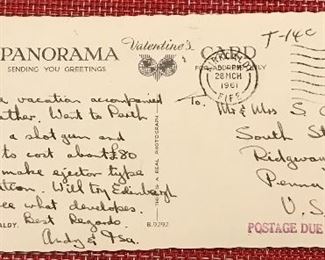 PANORAMA
SENDING YOU GREETINGS
Valentine's
CARD
FOR ADDRESS ONLY
T-14c
KIRKCALDY
28 MCH
1961
FIFE
vacation accompanied
Went to Perth
a slot gun and
to cost about £80
make ejector type
Will try Edinburgh
ee what develops.
Best Regards.
Andy & Isa.
ALDY.
B.9292
THIS IS A REAL PHOTOGRAPH
To.
Mr & Mrs S.
South St
Ridgeway
Penna
U.S
POSTAGE DUE